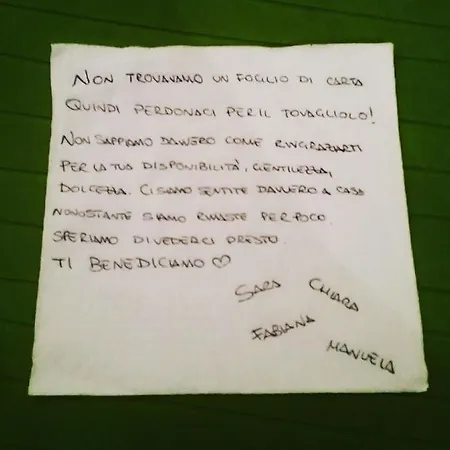 NON TROVAVAMO UN FOGLIO DI CARTA
QUINDI PERDONACI PER IL TOVAGLIOLO!
NON SAPPIAMO DAVVERO COME RINGRAZIARTI
PER LA TUA DISPONIBILITÀ, GENTILEZZA,
DOLCEZZA. CI SIAMO SENTITE DAVVERO A CASA
NONOSTANTE SIAMO RIMASTE PER POCO.
SPERIAMO DI VEDERCI PRESTO.
TI BENEDICIAMO ♡
SARA CHIARA
FABIANA
MANUELA